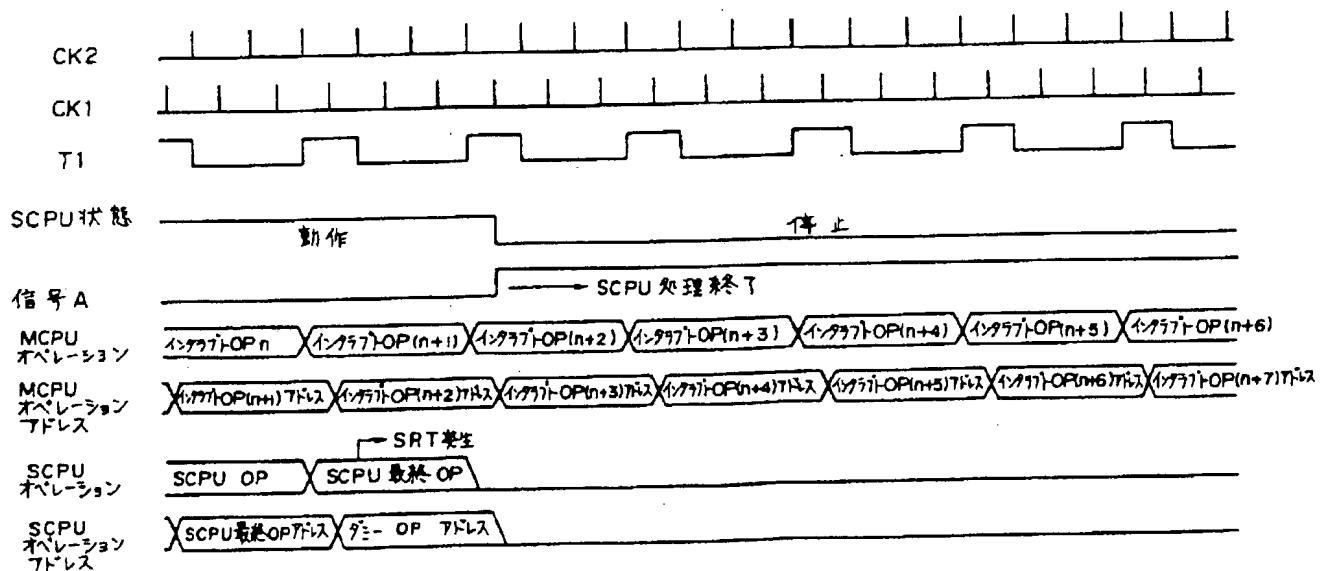 CK2
CK1
T1
SCPU状態
動作
停止
信号A
SCPU処理終了
MCPU
オペレーション
インタラプトOPn
インタラプトOP(n+1)
インタラプトOP(n+2)
インタラプトOP(n+3)
インタラプトOP(n+4)
インタラプトOP(n+5)
インタラプトOP(n+6)
MCPU
オペレーション
アドレス
インタラプトOP(n+1)アドレス
インタラプトOP(n+2)アドレス
インタラプトOP(n+3)アドレス
インタラプトOP(n+4)アドレス
インタラプトOP(n+5)アドレス
インタラプトOP(n+6)アドレス
インタラプトOP(n+7)アドレス
SRT発生
SCPU
オペレーション
SCPU OP
SCPU最終OP
SCPU
オペレーション
アドレス
SCPU最終OPアドレス
ダミー OP アドレス